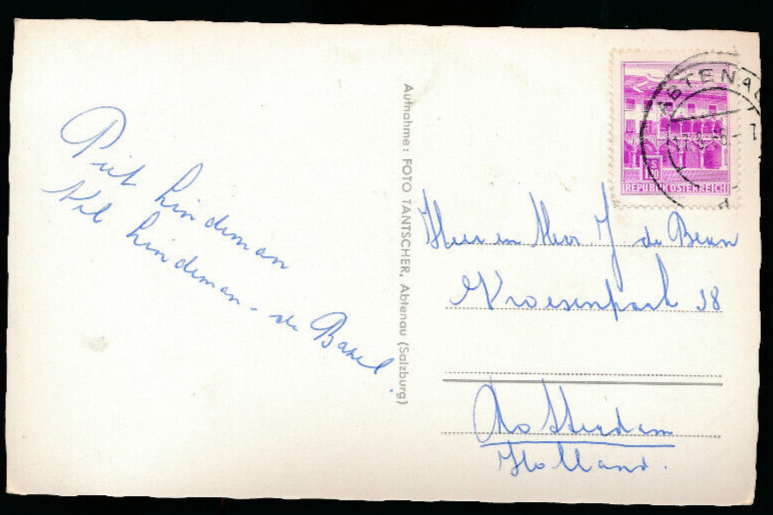 Piet Lindeman
Nel Lindeman - de Bakel.
Aufnahme: FOTO TANTSCHER, Abtenau (Salzburg)
ABTENAU
REPUBLIK ÖSTERREICH
Heer en Mevr J de Bruin
Vroesenpark 38
Rotterdam
Holland.